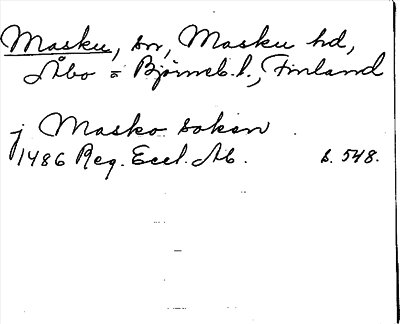 Masku, sn, Masku hd,
Åbo = Björneb. l., Finland
j Masko soken
1486 Reg. Eccl. Ab. s. 548.